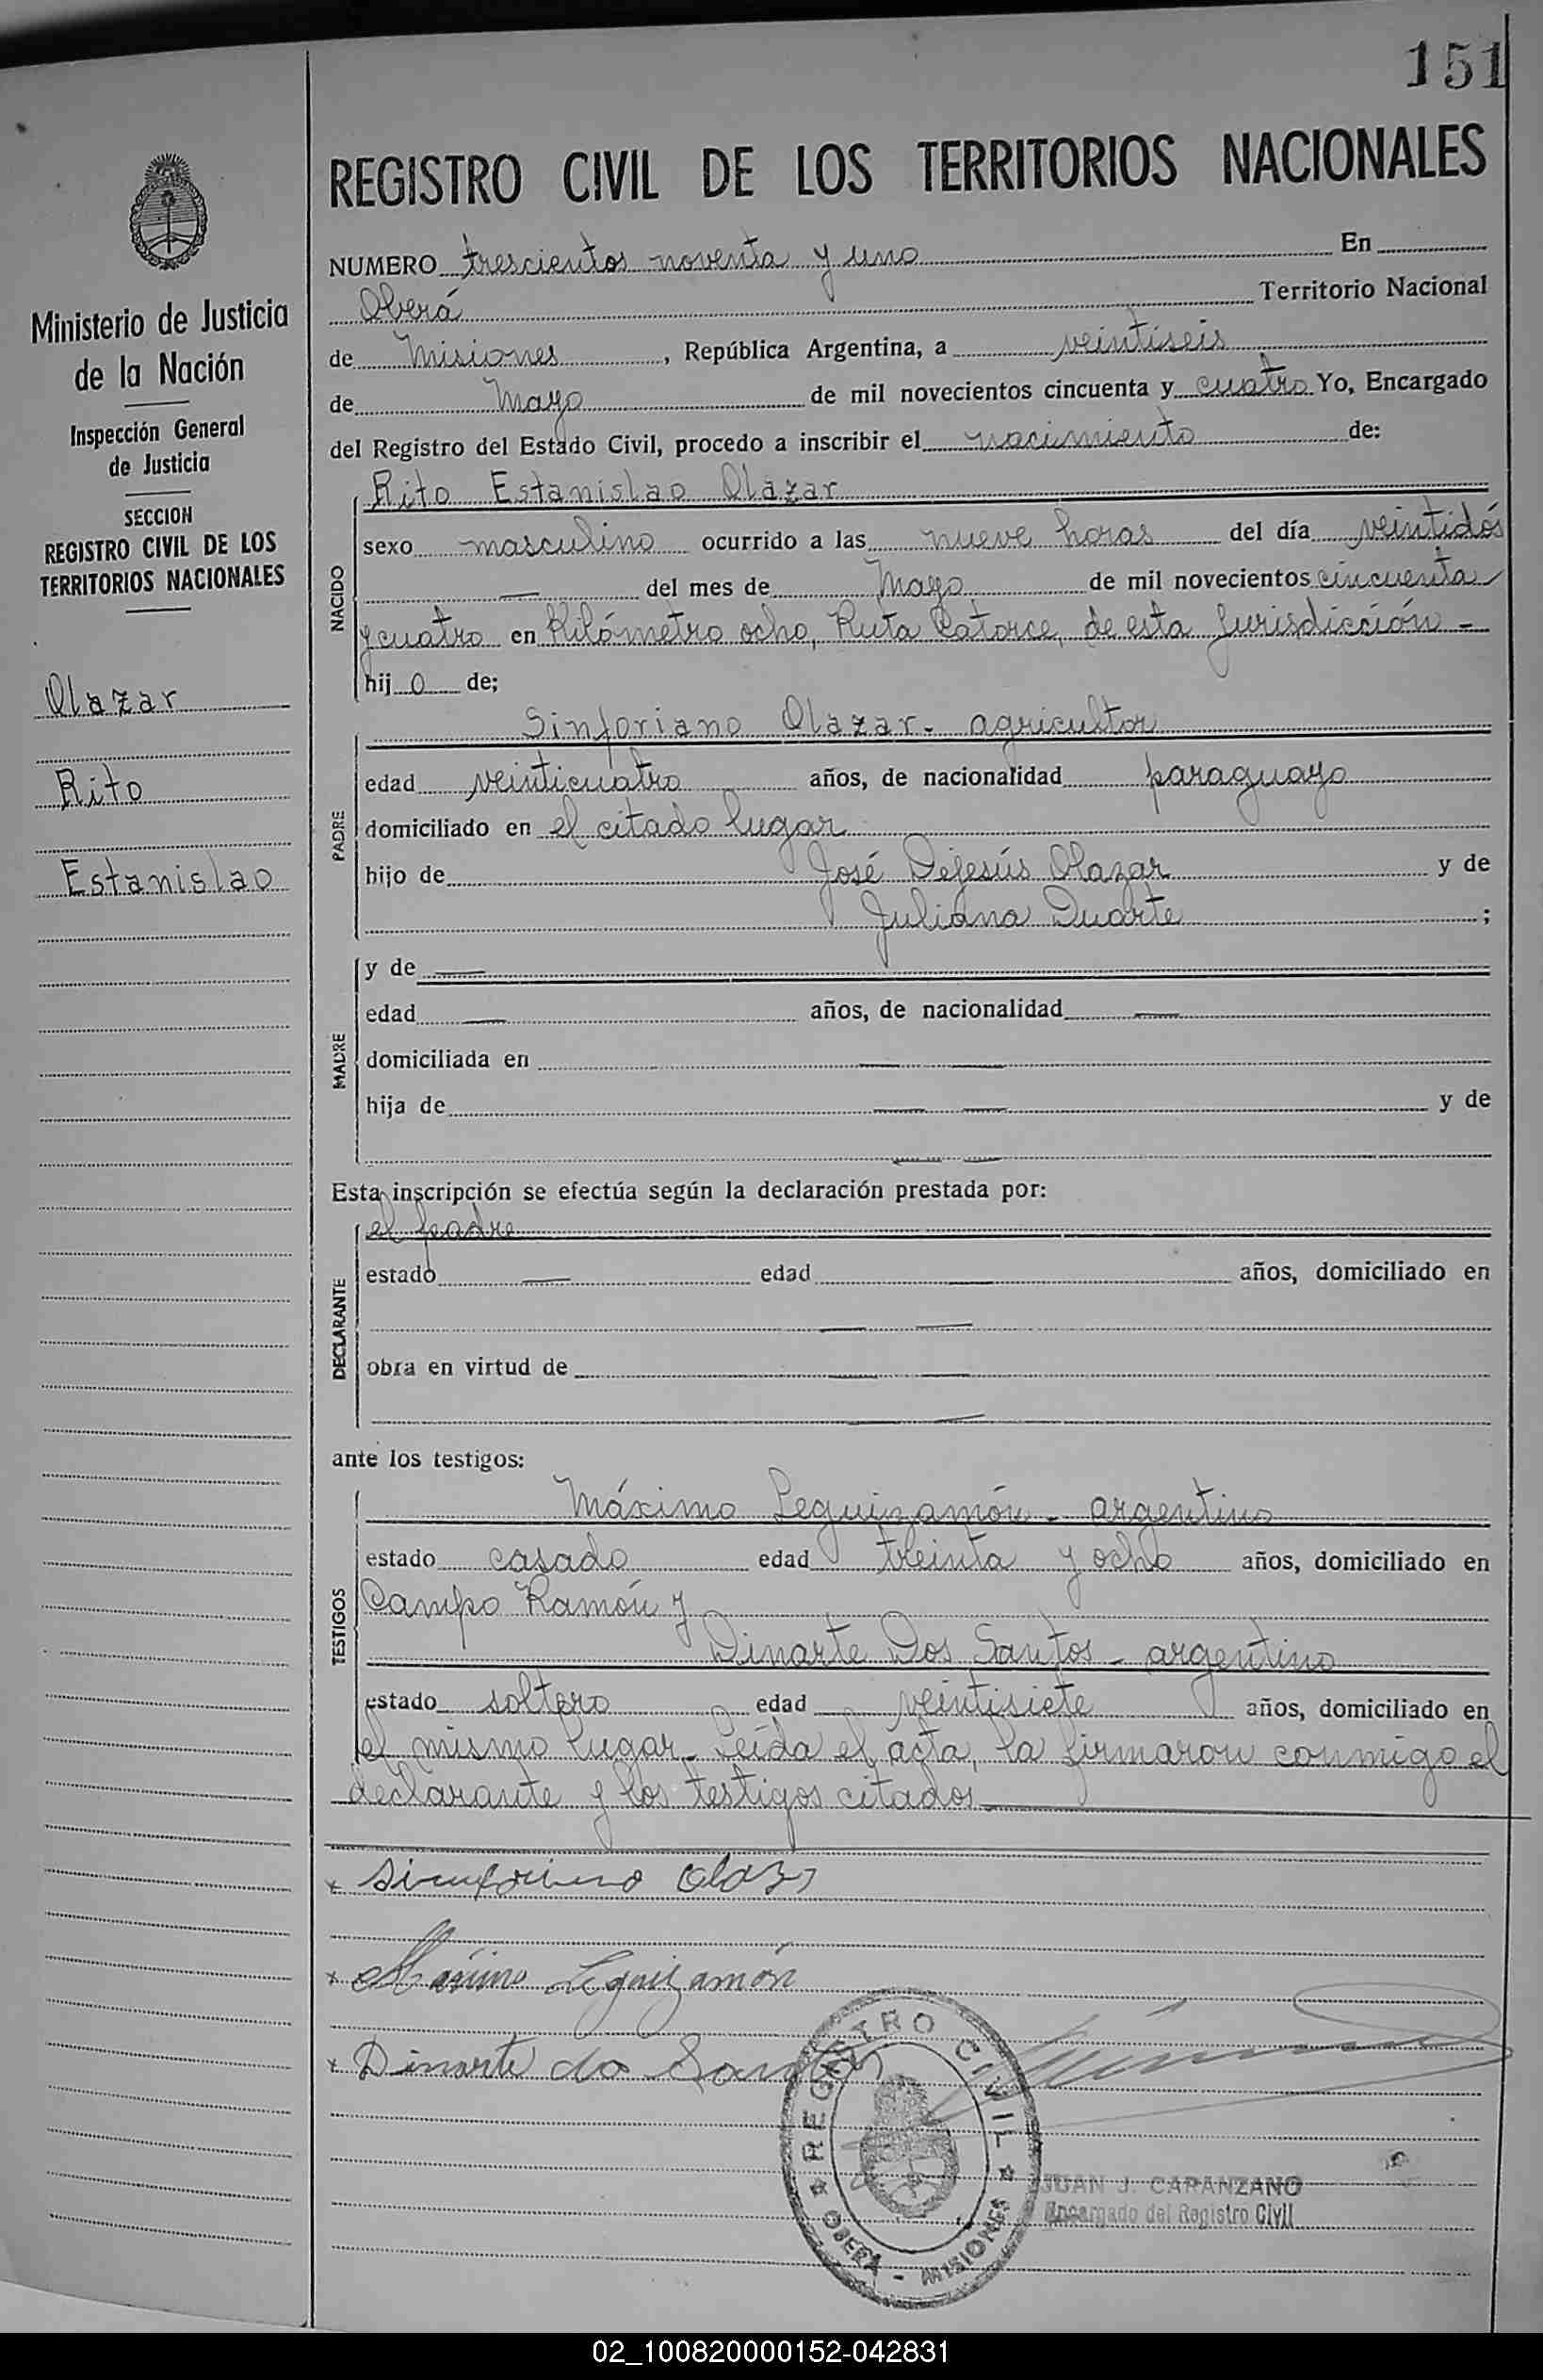 151
REGISTRO CIVIL DE LOS TERRITORIOS NACIONALES
Ministerio de Justicia
de la Nación
Inspección General
de Justicia
SECCION
REGISTRO CIVIL DE LOS
TERRITORIOS NACIONALES
Olazar
Rito
Estanislao
NUMERO trescientos noventa y uno En
Oberá Territorio Nacional
de Misiones, República Argentina, a veintiseis
de Mayo de mil novecientos cincuenta y cuatro Yo, Encargado
del Registro del Estado Civil, procedo a inscribir el nacimiento de:
NACIDO
Rito Estanislao Olazar
sexo masculino ocurrido a las nueve horas del día veintidós
— del mes de Mayo de mil novecientos cincuenta
y cuatro en Kilómetro ocho, Ruta Catorce, de esta Jurisdicción -
hij o de;
PADRE
Sinforiano Olazar - agricultor
edad veinticuatro años, de nacionalidad paraguayo
domiciliado en el citado lugar
hijo de José Dejesús Olazar y de
Juliana Duarte ;
MADRE
y de —
edad — años, de nacionalidad —
domiciliada en — —
hija de — — y de
— —
Esta inscripción se efectúa según la declaración prestada por:
DECLARANTE
el padre
estado — edad — años, domiciliado en
— —
obra en virtud de — —
— —
ante los testigos:
TESTIGOS
Máximo Leguizamón - argentino
estado casado edad treinta y ocho años, domiciliado en
Campo Ramón y
Dinarte Dos Santos - argentino
estado soltero edad veintisiete años, domiciliado en
el mismo lugar - Leída el acta, la firmaron conmigo el
declarante y los testigos citados
x Sinforiano Olaz
x Máximo Leguizamón
x Dinarte do Santos
REGISTRO CIVIL
OBERÁ - MISIONES
JUAN J. CARANZANO
Encargado del Registro Civil
02_100820000152-042831